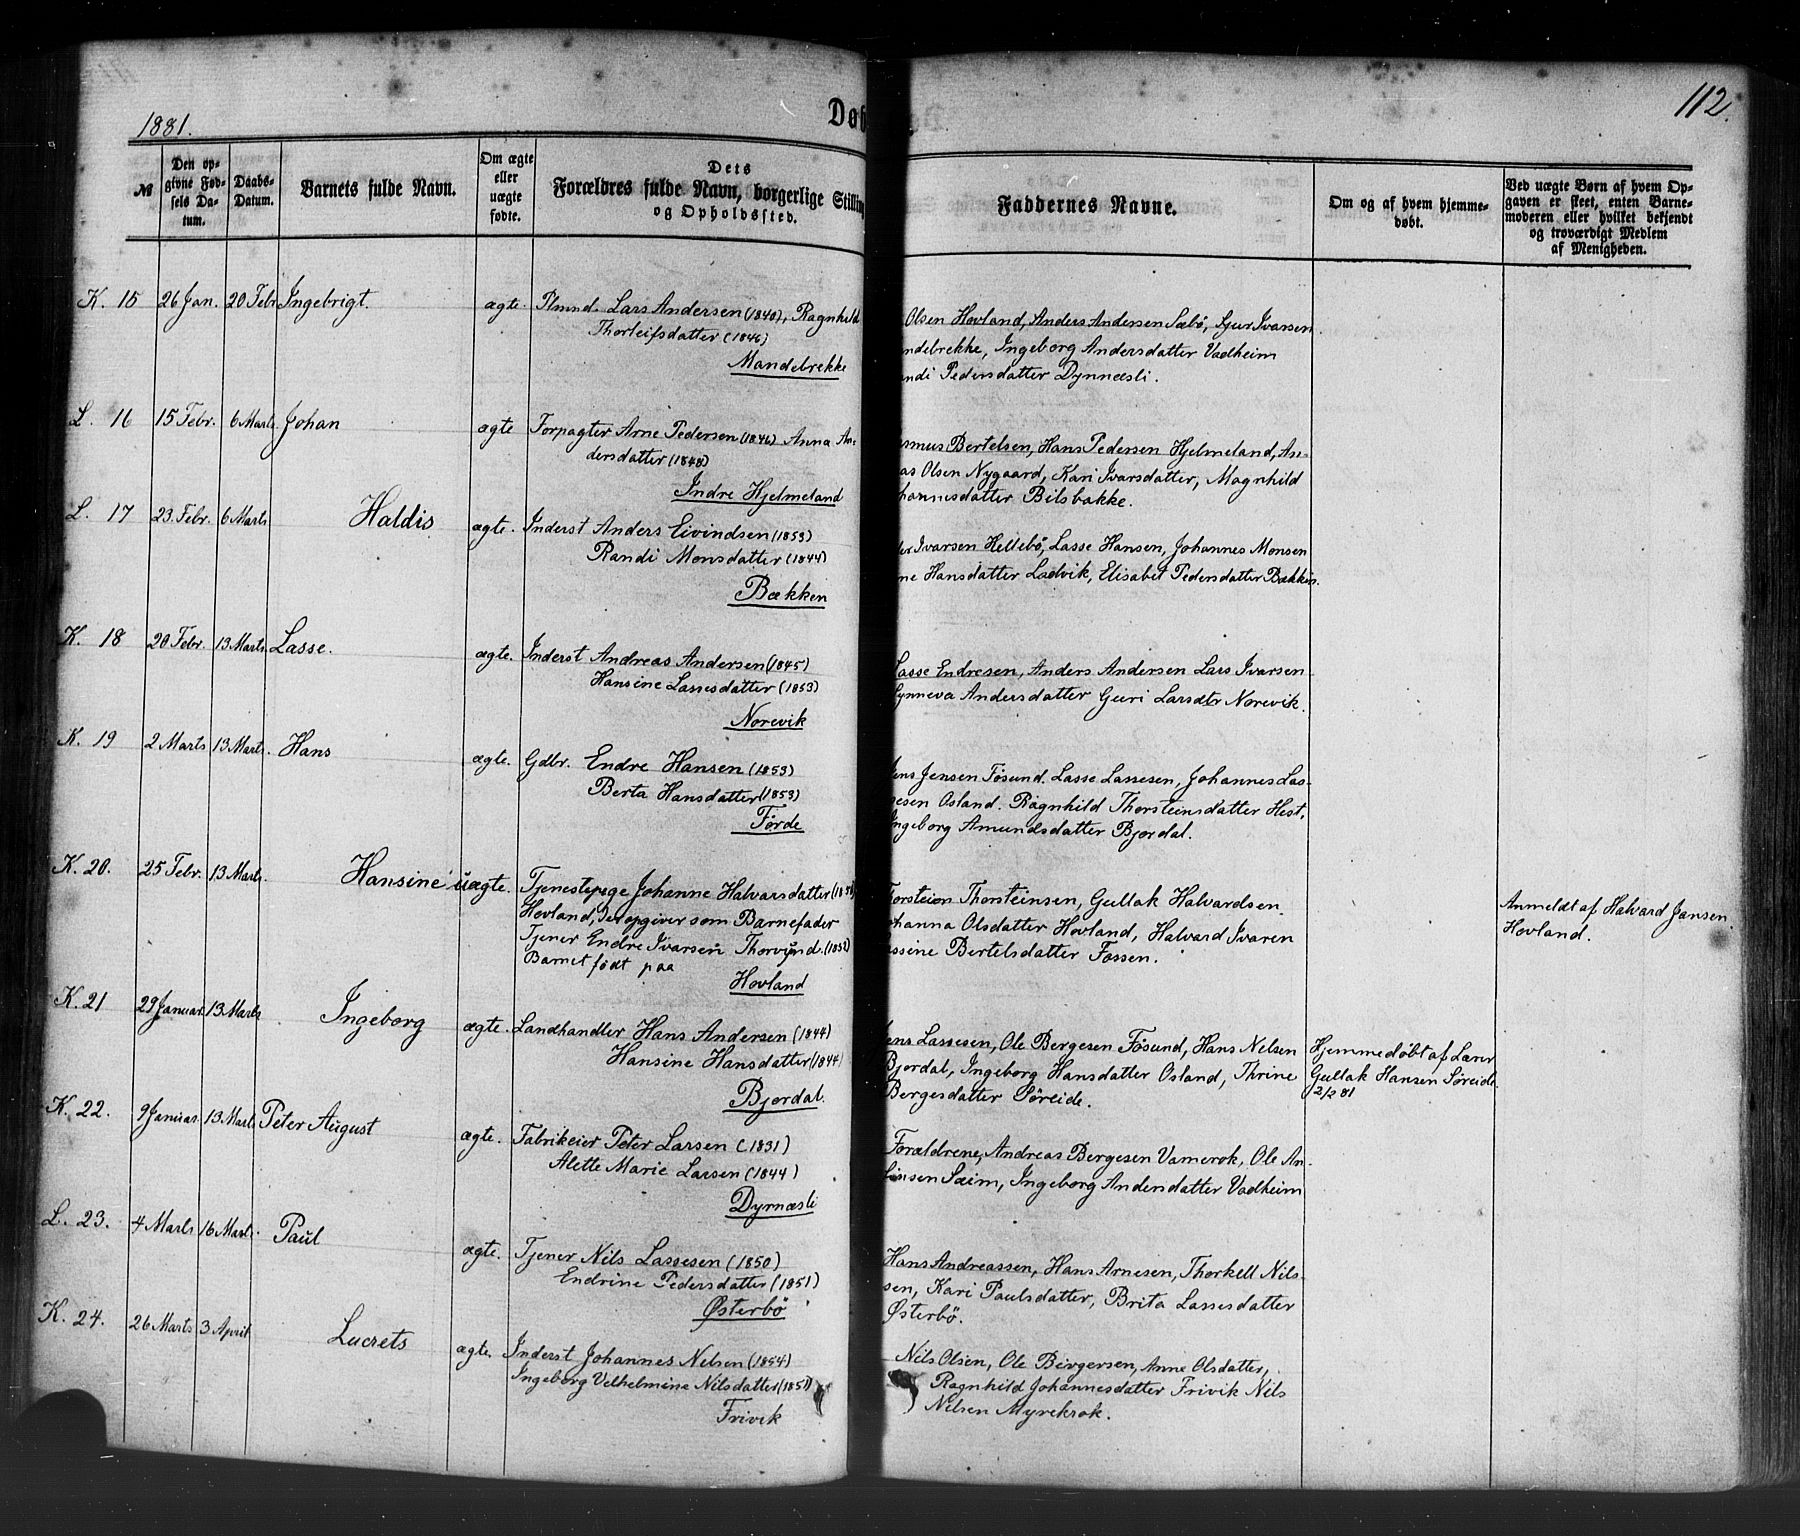 1881.
Døb
112.
№
Den op-
givne Fød-
sels Da-
tum.
Daabs-
Datum.
Barnets fulde Navn.
Om ægte
eller
uægte
fødte.
Dets
Forældres fulde Navn, borgerlige Stilling
og Opholdssted.
Faddernes Navne.
Om og af hvem hjemme-
døbt.
Ved uægte Børn af hvem Op-
gaven er skeet, enten Barne-
moderen eller hvilket bekjendt
og troværdigt Medlem
af Menigheden.
K. 15 26 Jan. 20 Febr Ingebrigt. ægte. Lars Andersen (1840), Ragnhild
Thorleifsdatter (1846)
Mandebrekke
Olsen Hovland, Anders Andersen Sæbö, Sjur Ivarsen
ndebrekke, Ingeborg Andersdatter Vadheim
ndi Pedersdatter Dynnæsli.
L. 16 15 Febr. 6 Marts Johan ægte Forpagter Arne Pedersen (1846) Anna An-
dersdatter (1848)
Indre Hjelmeland
smus Bertelsen, Hans Pedersen Hjelmeland, An-
as Olsen Nygaard, Kari Ivarsdatter, Magnhild
hannesdatter Bilsbakke.
L. 17 23. Febr. 6 Marts Haldis ægte. Inderst Anders Eivindsen (1853)
Randi Monsdatter (1844)
Bækken
der Ivarsen Hellebö, Lasse Hansen, Johannes Monsen
ne Hansdatter Ladvik, Elisabet Pedersdatter Bækken.
K. 18 20 Febr. 13 Marts Lasse. ægte. Inderst Andreas Andersen (1845)
Hansine Lassesdatter (1853)
Norevik
Lasse Endresen, Anders Andersen Lars Ivarsen
Synneva Andersdatter Guri Larsdtr Norevik.
K. 19 2 Marts 13 Marts. Hans ægte. Gdbr. Endre Hansen (1853)
Berta Hansdatter (1853)
Förde
Jens Jensen Tösund. Lasse Lassesen, Johannes Las-
sesen Osland. Ragnhild Thorsteinsdatter Hest,
Ingeborg Amundsdatter Bjordal.
K. 20. 25 Febr. 13 Marts. Hansine uægte. Tjenestepige Johanne Halvarsdatter
Hovland, der opgiver som Barnefader
Tjener Endre Ivarsen Thorvund. (1852)
Barnet födt paa
Hovland
Torstein Thorsteinsen, Gullak Halvardsen
ohanna Olsdatter Hovland, Halvard Ivaren
ssine Bertelsdatter Fossen.
Anmeldt af Halvard Jansen
Hovland.
K. 21 29 Januar. 13 Marts Ingeborg ægte. Landhandler Hans Andersen (1844)
Hansine Hansdatter (1844)
Bjordal.
Jens Lassesen, Ole Bergesen Tösund, Hans Nelsen
Bjordal, Ingeborg Hansdatter Osland, Thrine
Bergesdatter Söreide.
Hjemmedöbt af Lærer
Gullak Hansen Söreide.
2/2 81
K. 22. 9 Januar. 13 Marts Peter August ægte. Fabrikeier Peter Larsen (1831)
Alette Marie Larsen (1844)
Dyrnæsli
Forældrene, Andreas Bergesen Vamerok, Ole An-
Saim, Ingeborg Andersdatter Vadheim
L. 23. 4 Marts 16 Marts. Paul ægte. Tjener Nils Lassesen (1850)
Endrine Pedersdatter (1851)
Østerbö
Hans Andreassen, Hans Arnesen, Thorkell Nils-
sen, Kari Paulsdatter, Brita Lassesdatter
Østerbö.
K. 24. 26 Marts 3 April Lucrets ægte. Inderst Johannes Nelsen (1854)
Ingeborg Velhelmine Nilsdatter (1851)
Frivik
Nils Olsen, Ole Birgersen, Anne Olsdatter,
Ragnhild Johannesdatter Frivik Nils
Nelsen Myrekrok.